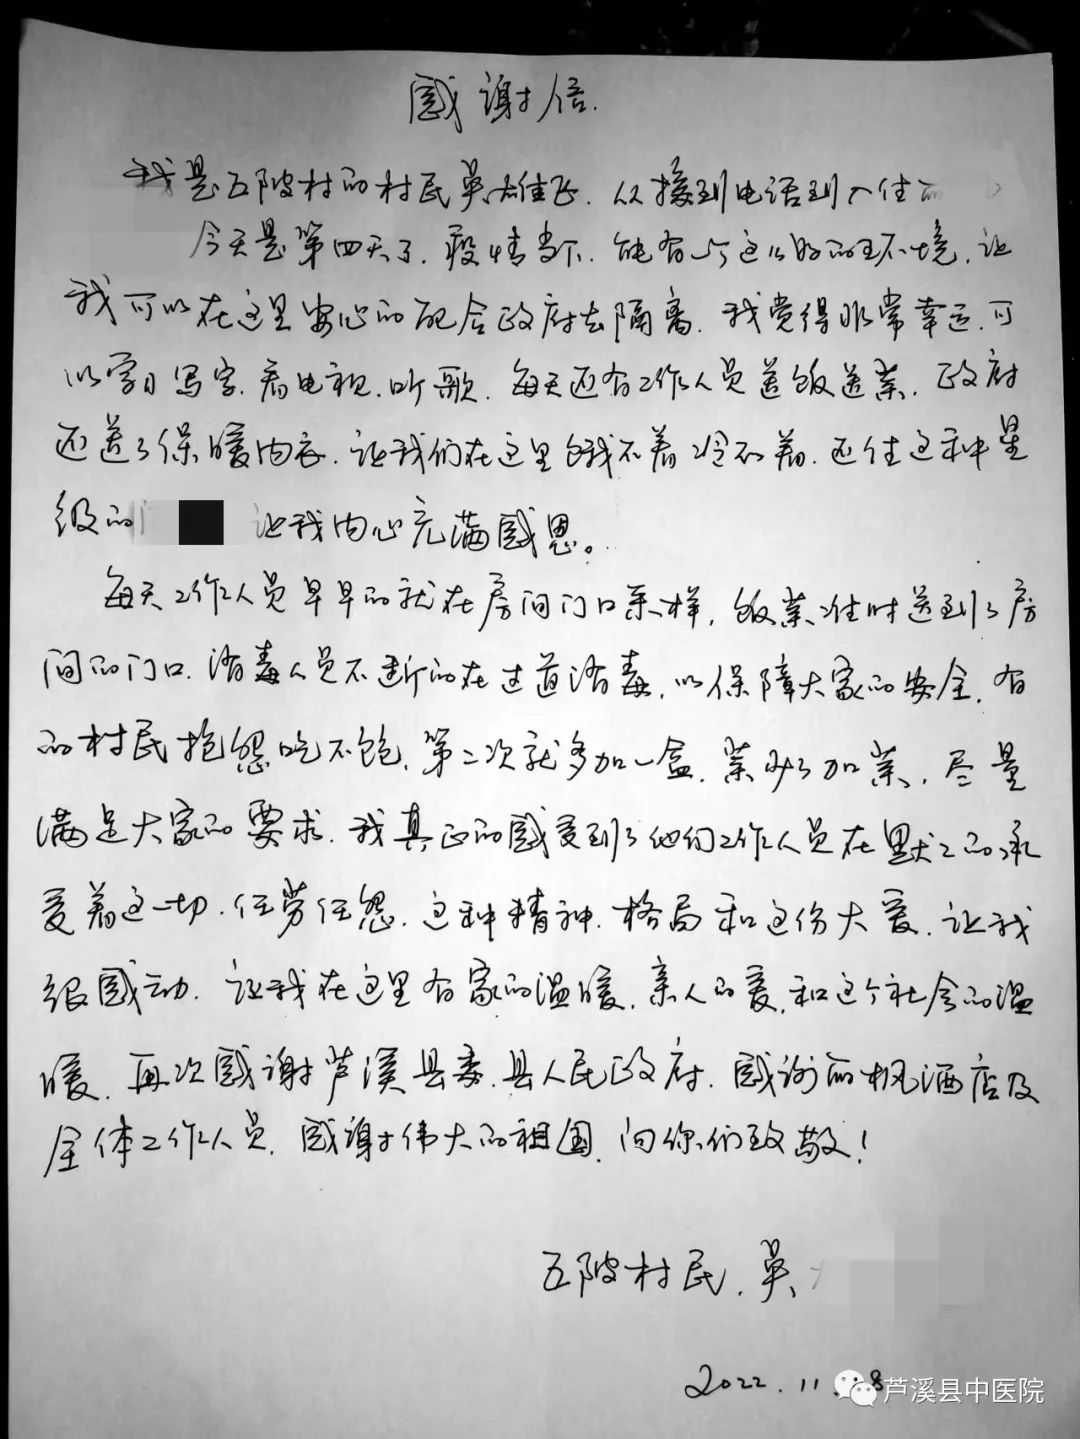 感谢信.
我是五陂村的村民吴雄飞.从接到电话到入住
今天是第四天了.疫情当下.能有这么好的环境,让
我可以在这里安心的配合政府去隔离.我觉得非常幸运.可
以学习写字.看电视.听歌.每天还有工作人员送饭送菜.政府
还送了保暖内衣.让我们在这里饿不着冷不着.还住这种星
级的 让我内心充满感恩。
每天工作人员早早的就在房间门口采样,饭菜准时送到了房
间的门口.消毒人员不断的在过道消毒,以保障大家的安全.有
的村民抱怨吃不饱.第二次就多加一盒.菜少了加菜.尽量
满足大家的要求.我真正的感受到了他们工作人员在默默的承
受着这一切.任劳任怨.这种精神.格局和这份大爱.让我
很感动.让我在这里有家的温暖.亲人的爱,和这个社会的温
暖.再次感谢芦溪县委.县人民政府.感谢丽枫酒店及
全体工作人员.感谢伟大的祖国.向你们致敬!
五陂村民.吴
2022.11.8
芦溪县中医院